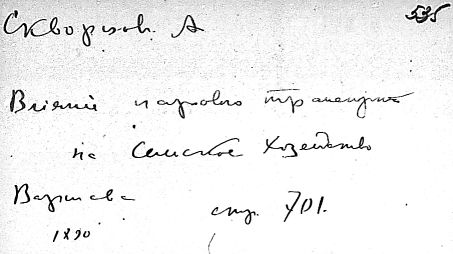 535
Скворцов. А
Влiянiе парового транспорта
на Сельское Хозяйство
Варшава стр. 701.
1890